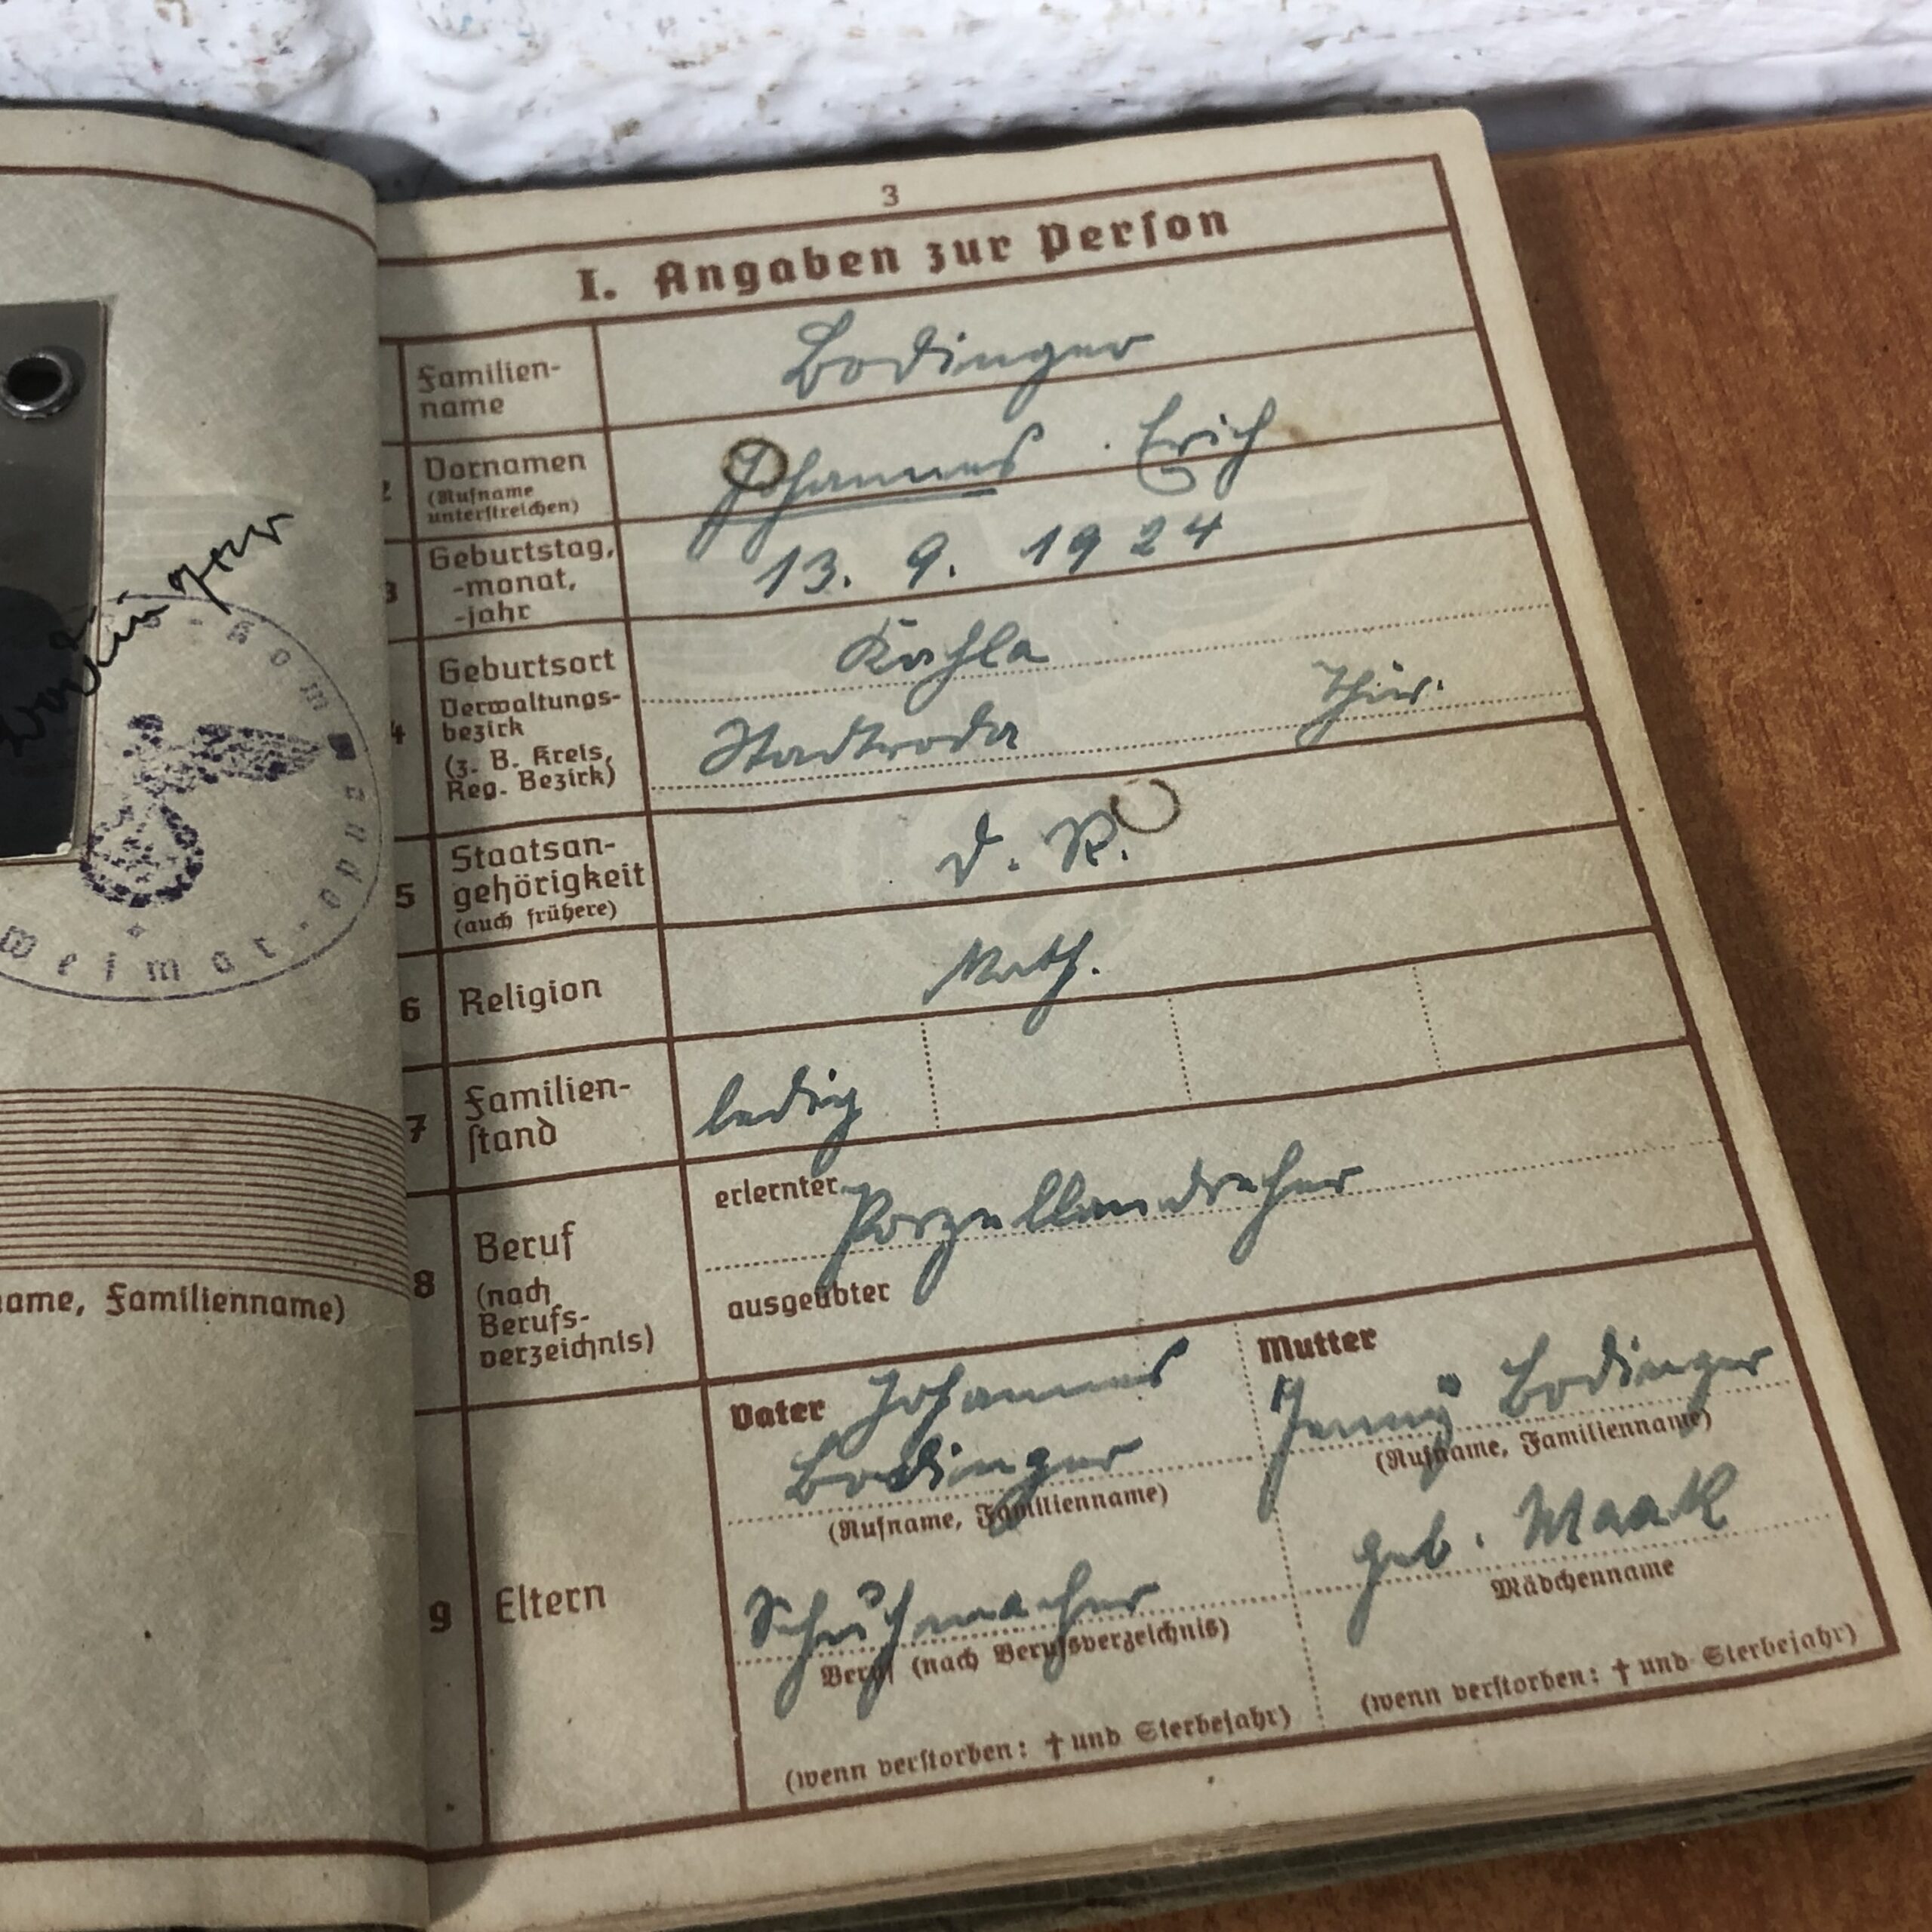 Bodinger
Kommando
Weimar
ame, Familienname)
3
I. Angaben zur Person
Familien-
name
Bodinger
2
Vornamen
(Rufname
unterstreichen)
Johannes Erich
3
Geburtstag,
-monat,
-jahr
13. 9. 1924
4
Geburtsort
Kahla
Verwaltungs-
bezirk
(z. B. Kreis,
Reg. Bezirk)
Stadtroda Thür.
5
Staatsan-
gehörigkeit
(auch frühere)
D. R.
6
Religion
Kath.
7
Familien-
stand
ledig
8
Beruf
(nach
Berufs-
verzeichnis)
erlernter
Porzellandreher
ausgeübter
9
Eltern
Vater Johannes
Bodinger
(Rufname, Familienname)
Schuhmacher
Beruf (nach Berufsverzeichnis)
(wenn verstorben: † und Sterbejahr)
Mutter
Jenny Bodinger
(Rufname, Familienname)
geb. Maak
Mädchenname
(wenn verstorben: † und Sterbejahr)